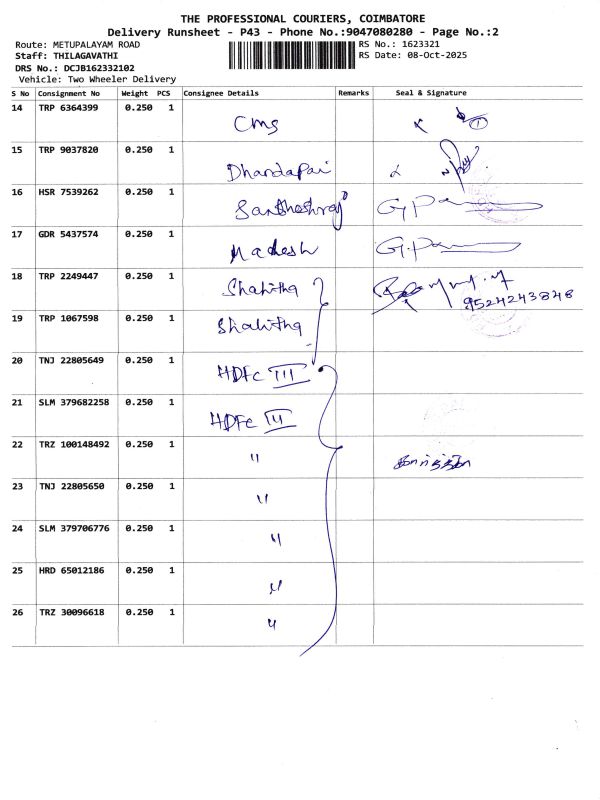 THE PROFESSIONAL COURIERS, COIMBATORE
Delivery Runsheet - P43 - Phone No.:9047080280 - Page No.:2
Route: METUPALAYAM ROAD RS No.: 1623321
Staff: THILAGAVATHI RS Date: 08-Oct-2025
DRS No.: DCJB162332102
Vehicle: Two Wheeler Delivery
S No Consignment No Weight PCS Consignee Details Remarks Seal & Signature
14 TRP 6364399 0.250 1 CMS
15 TRP 9037820 0.250 1 Dhandapai
16 HSR 7539262 0.250 1 Santhoshraj
17 GDR 5437574 0.250 1 Madesh
18 TRP 2249447 0.250 1 Shahitha 9524243848
19 TRP 1067598 0.250 1 Shahitha
20 TNJ 22805649 0.250 1 HDFC III
21 SLM 379682258 0.250 1 HDFC III
22 TRZ 100148492 0.250 1 "
23 TNJ 22805650 0.250 1 "
24 SLM 379706776 0.250 1 "
25 HRD 65012186 0.250 1 "
26 TRZ 30096618 0.250 1 "